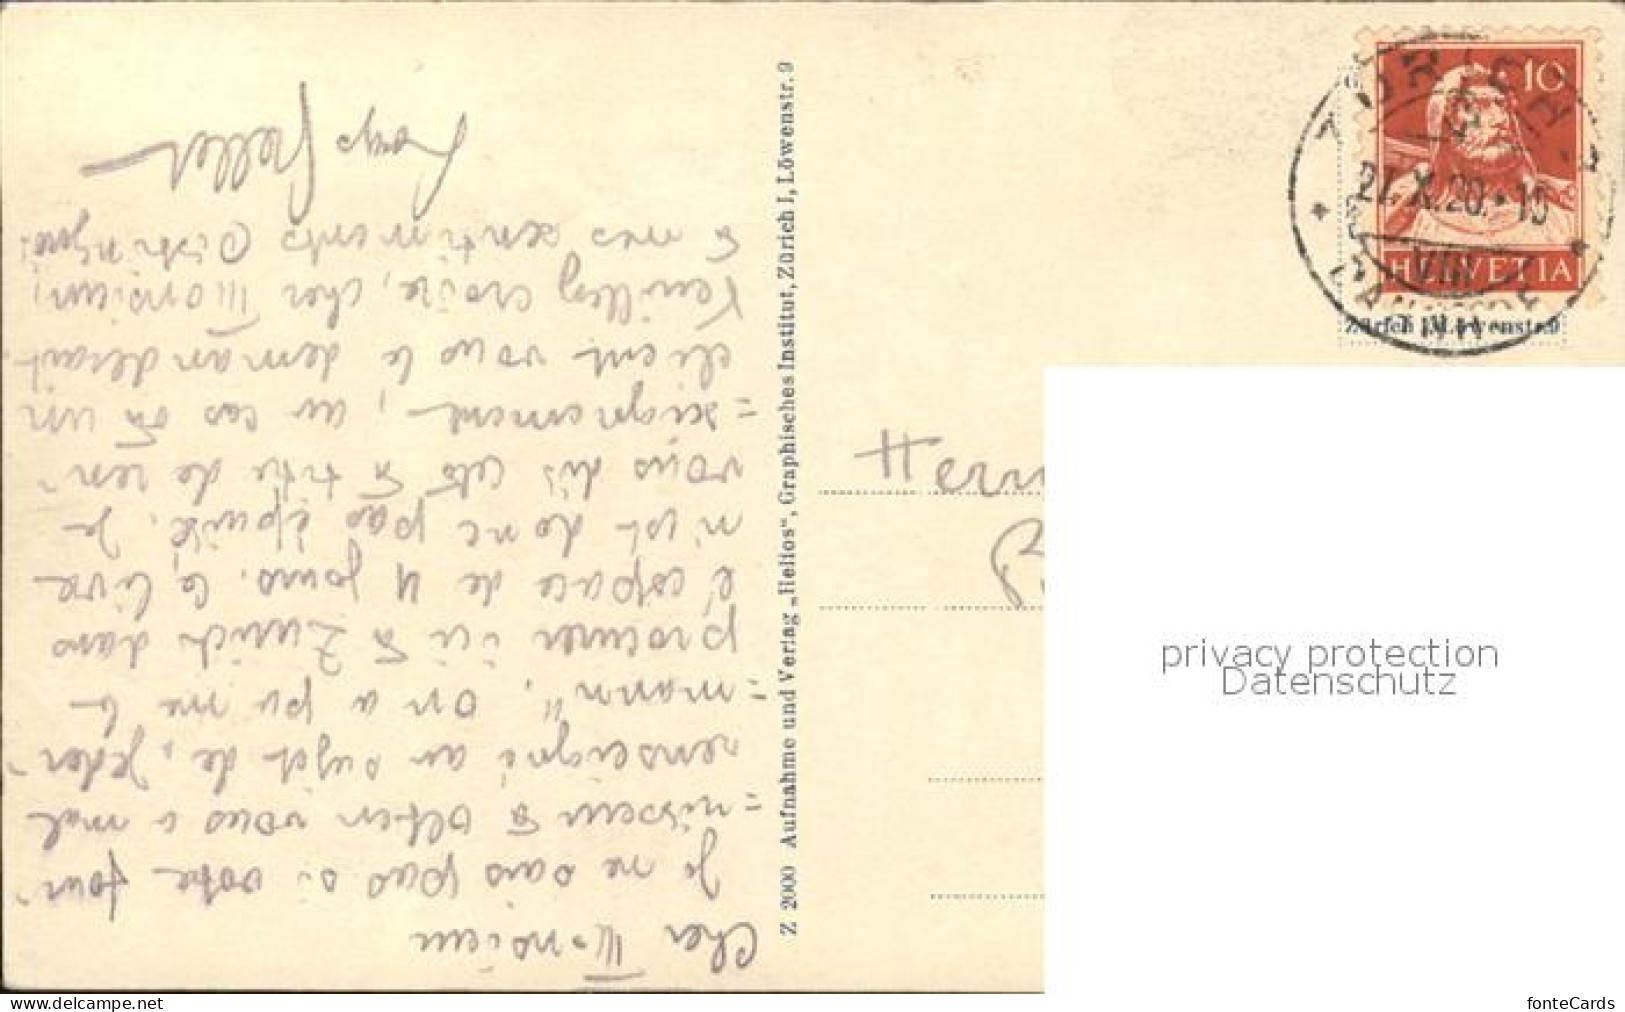 Cher Monsieur
Je ne sais pas si votre four-
=nisseur à Olten vous a mal
renseigné au sujet de „Jeder-
=mann“, on a pu me le
procurer ici à Zurich dans
l'espace de 4 jours. Ce livre
n'est donc pas épuisé. Je
vous dis cela à titre de ren-
=seignement, au cas où un
client vous le demanderait.
Veuillez croire, cher Monsieur,
à mes sentiments distingués.
Z 2000 Aufnahme und Verlag „Helios“, Graphisches Institut, Zürich I, Löwenstr. 9
10
HELVETIA
ZÜRICH
27.X.20.-15
VIII
Zürich I, Löwenstr. 9
Herrn
privacy protection
Datenschutz
www.delcampe.net
fonteCards